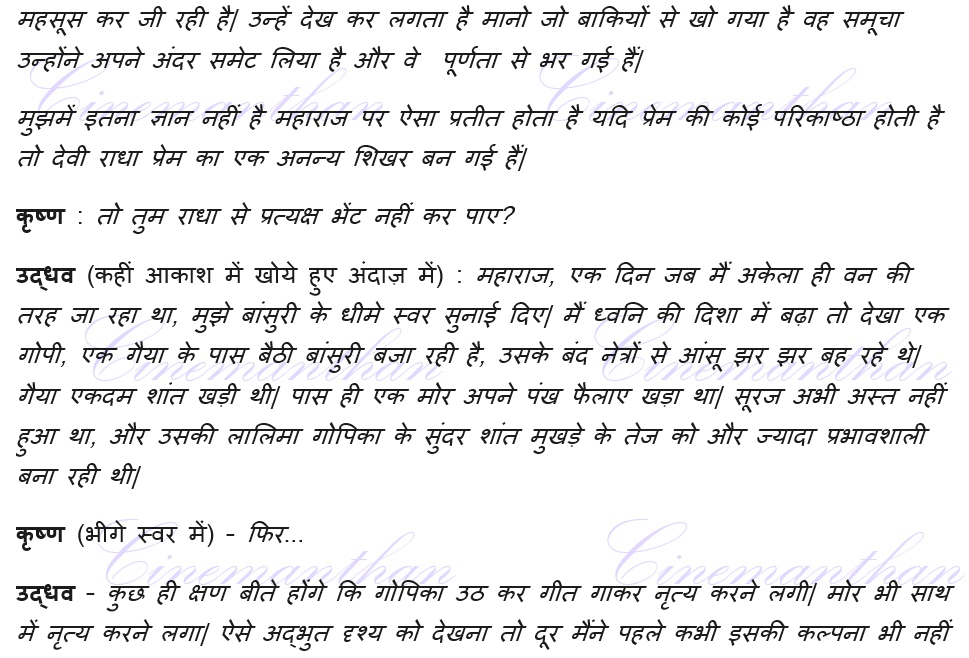 महसूस कर जी रही है| उन्हें देख कर लगता है मानो जो बाकियों से खो गया है वह समूचा
उन्होंने अपने अंदर समेट लिया है और वे पूर्णता से भर गई हैं|
मुझमें इतना ज्ञान नहीं है महाराज पर ऐसा प्रतीत होता है यदि प्रेम की कोई परिकाष्ठा होती है
तो देवी राधा प्रेम का एक अनन्य शिखर बन गई हैं|
कृष्ण : तो तुम राधा से प्रत्यक्ष भेंट नहीं कर पाए?
उद्धव (कहीं आकाश में खोये हुए अंदाज़ में) : महाराज, एक दिन जब मैं अकेला ही वन की
तरह जा रहा था, मुझे बांसुरी के धीमे स्वर सुनाई दिए| मैं ध्वनि की दिशा में बढ़ा तो देखा एक
गोपी, एक गैया के पास बैठी बांसुरी बजा रही है, उसके बंद नेत्रों से आंसू झर झर बह रहे थे|
गैया एकदम शांत खड़ी थी| पास ही एक मोर अपने पंख फैलाए खड़ा था| सूरज अभी अस्त नहीं
हुआ था, और उसकी लालिमा गोपिका के सुंदर शांत मुखड़े के तेज को और ज्यादा प्रभावशाली
बना रही थी|
कृष्ण (भीगे स्वर में) - फिर...
उद्धव - कुछ ही क्षण बीते होंगे कि गोपिका उठ कर गीत गाकर नृत्य करने लगी| मोर भी साथ
में नृत्य करने लगा| ऐसे अद्भुत दृश्य को देखना तो दूर मैंने पहले कभी इसकी कल्पना भी नहीं
Cinemanthan
Cinemanthan
Cinemanthan
Cinemanthan
Cinemanthan
Cinemanthan